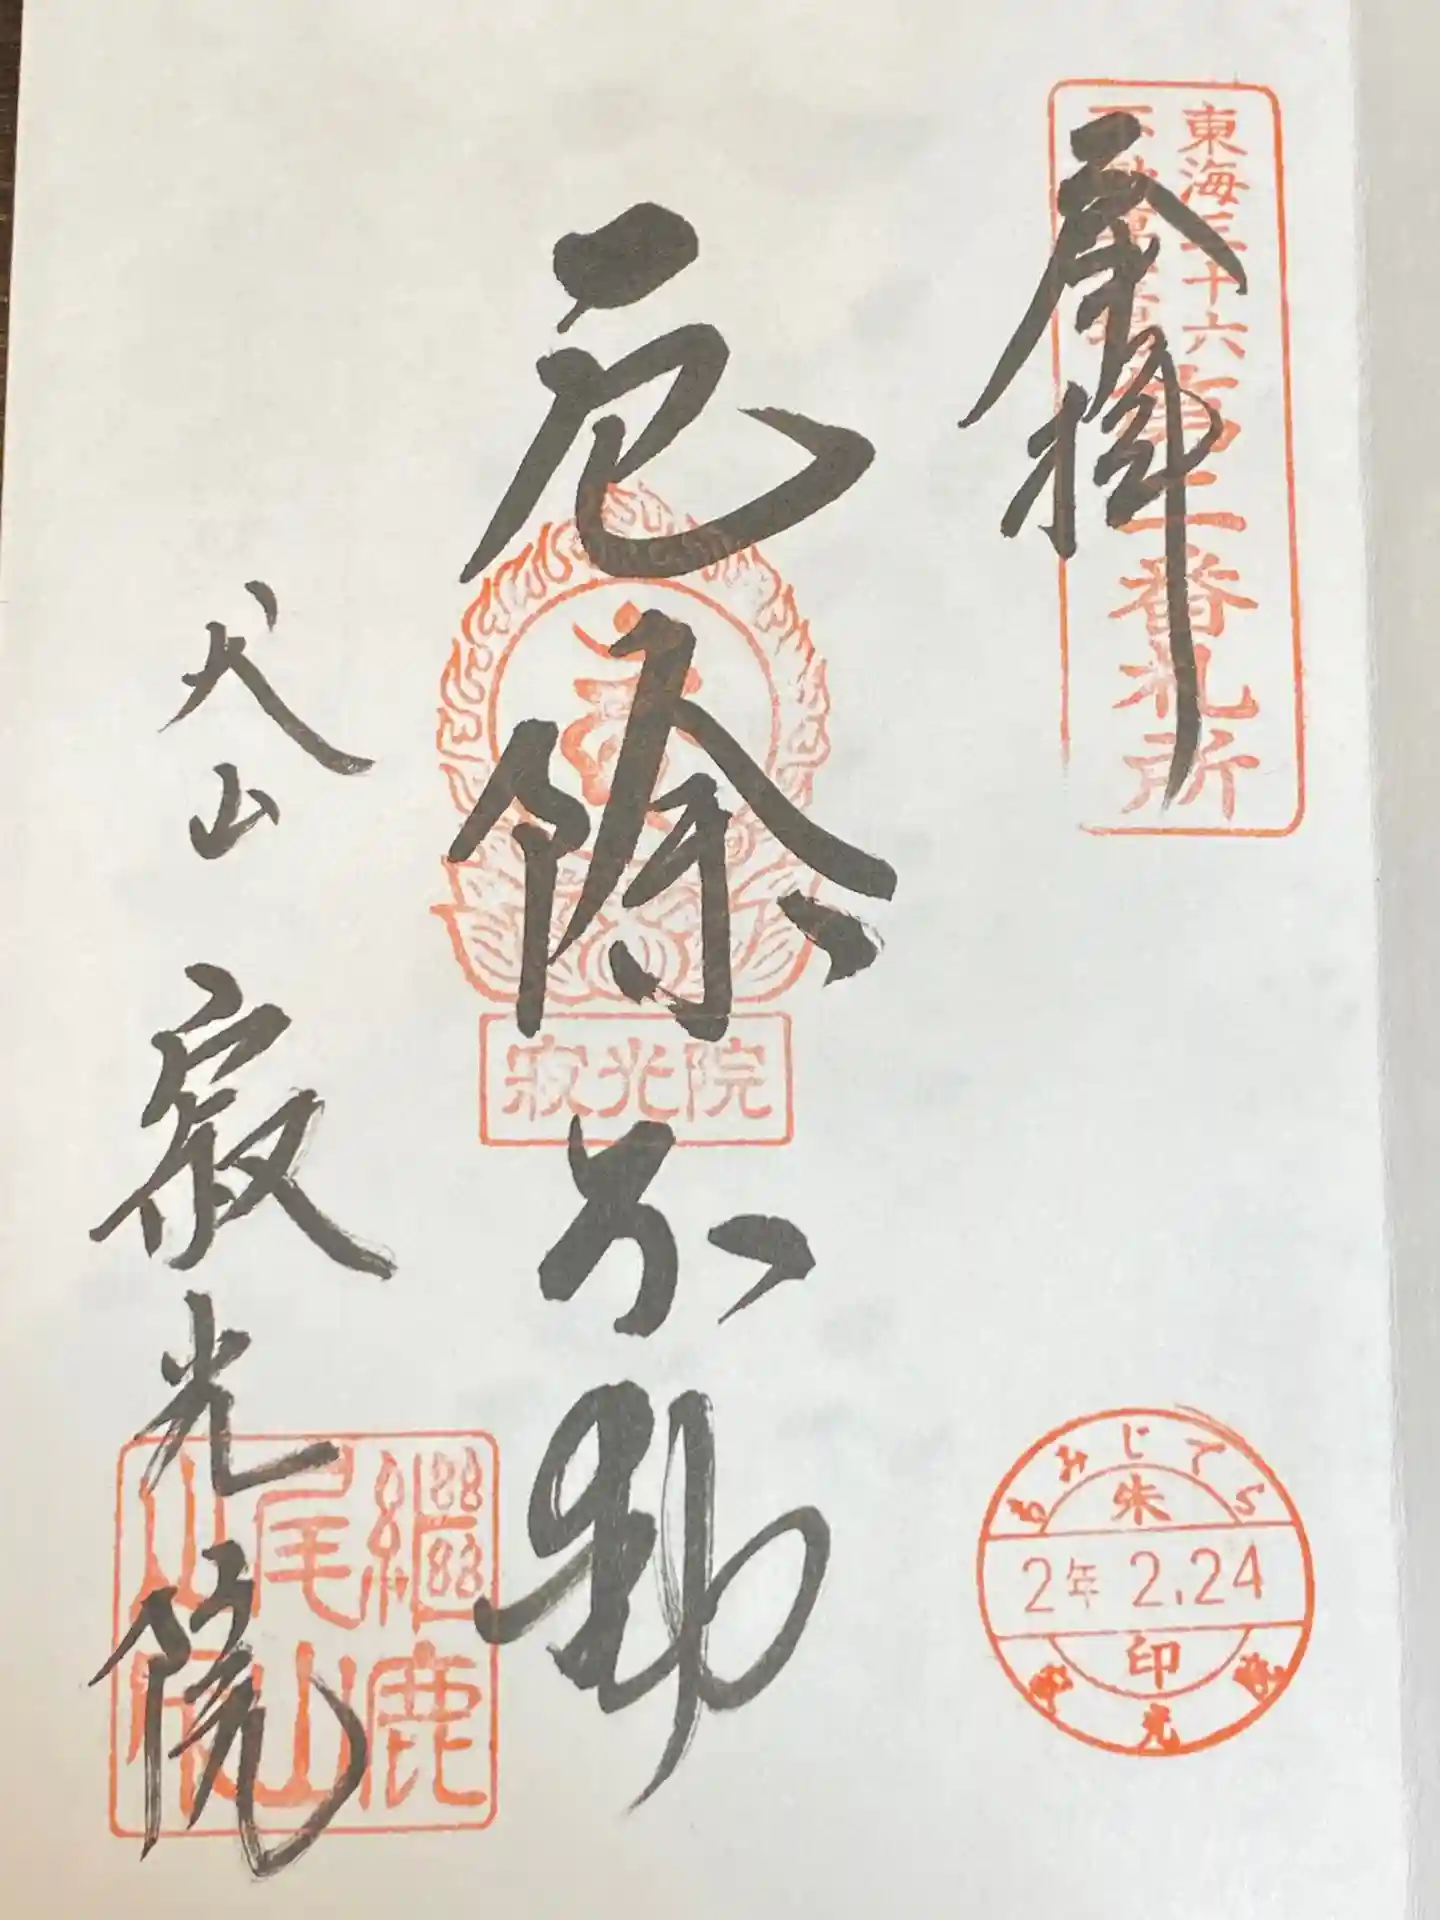 奉拝
東海三十六
不動尊霊場
第二番札所
厄除
不動
寂光院
犬山
寂光院
継鹿
尾山
もみじでら
朱
2年 2.24
印
寂光院